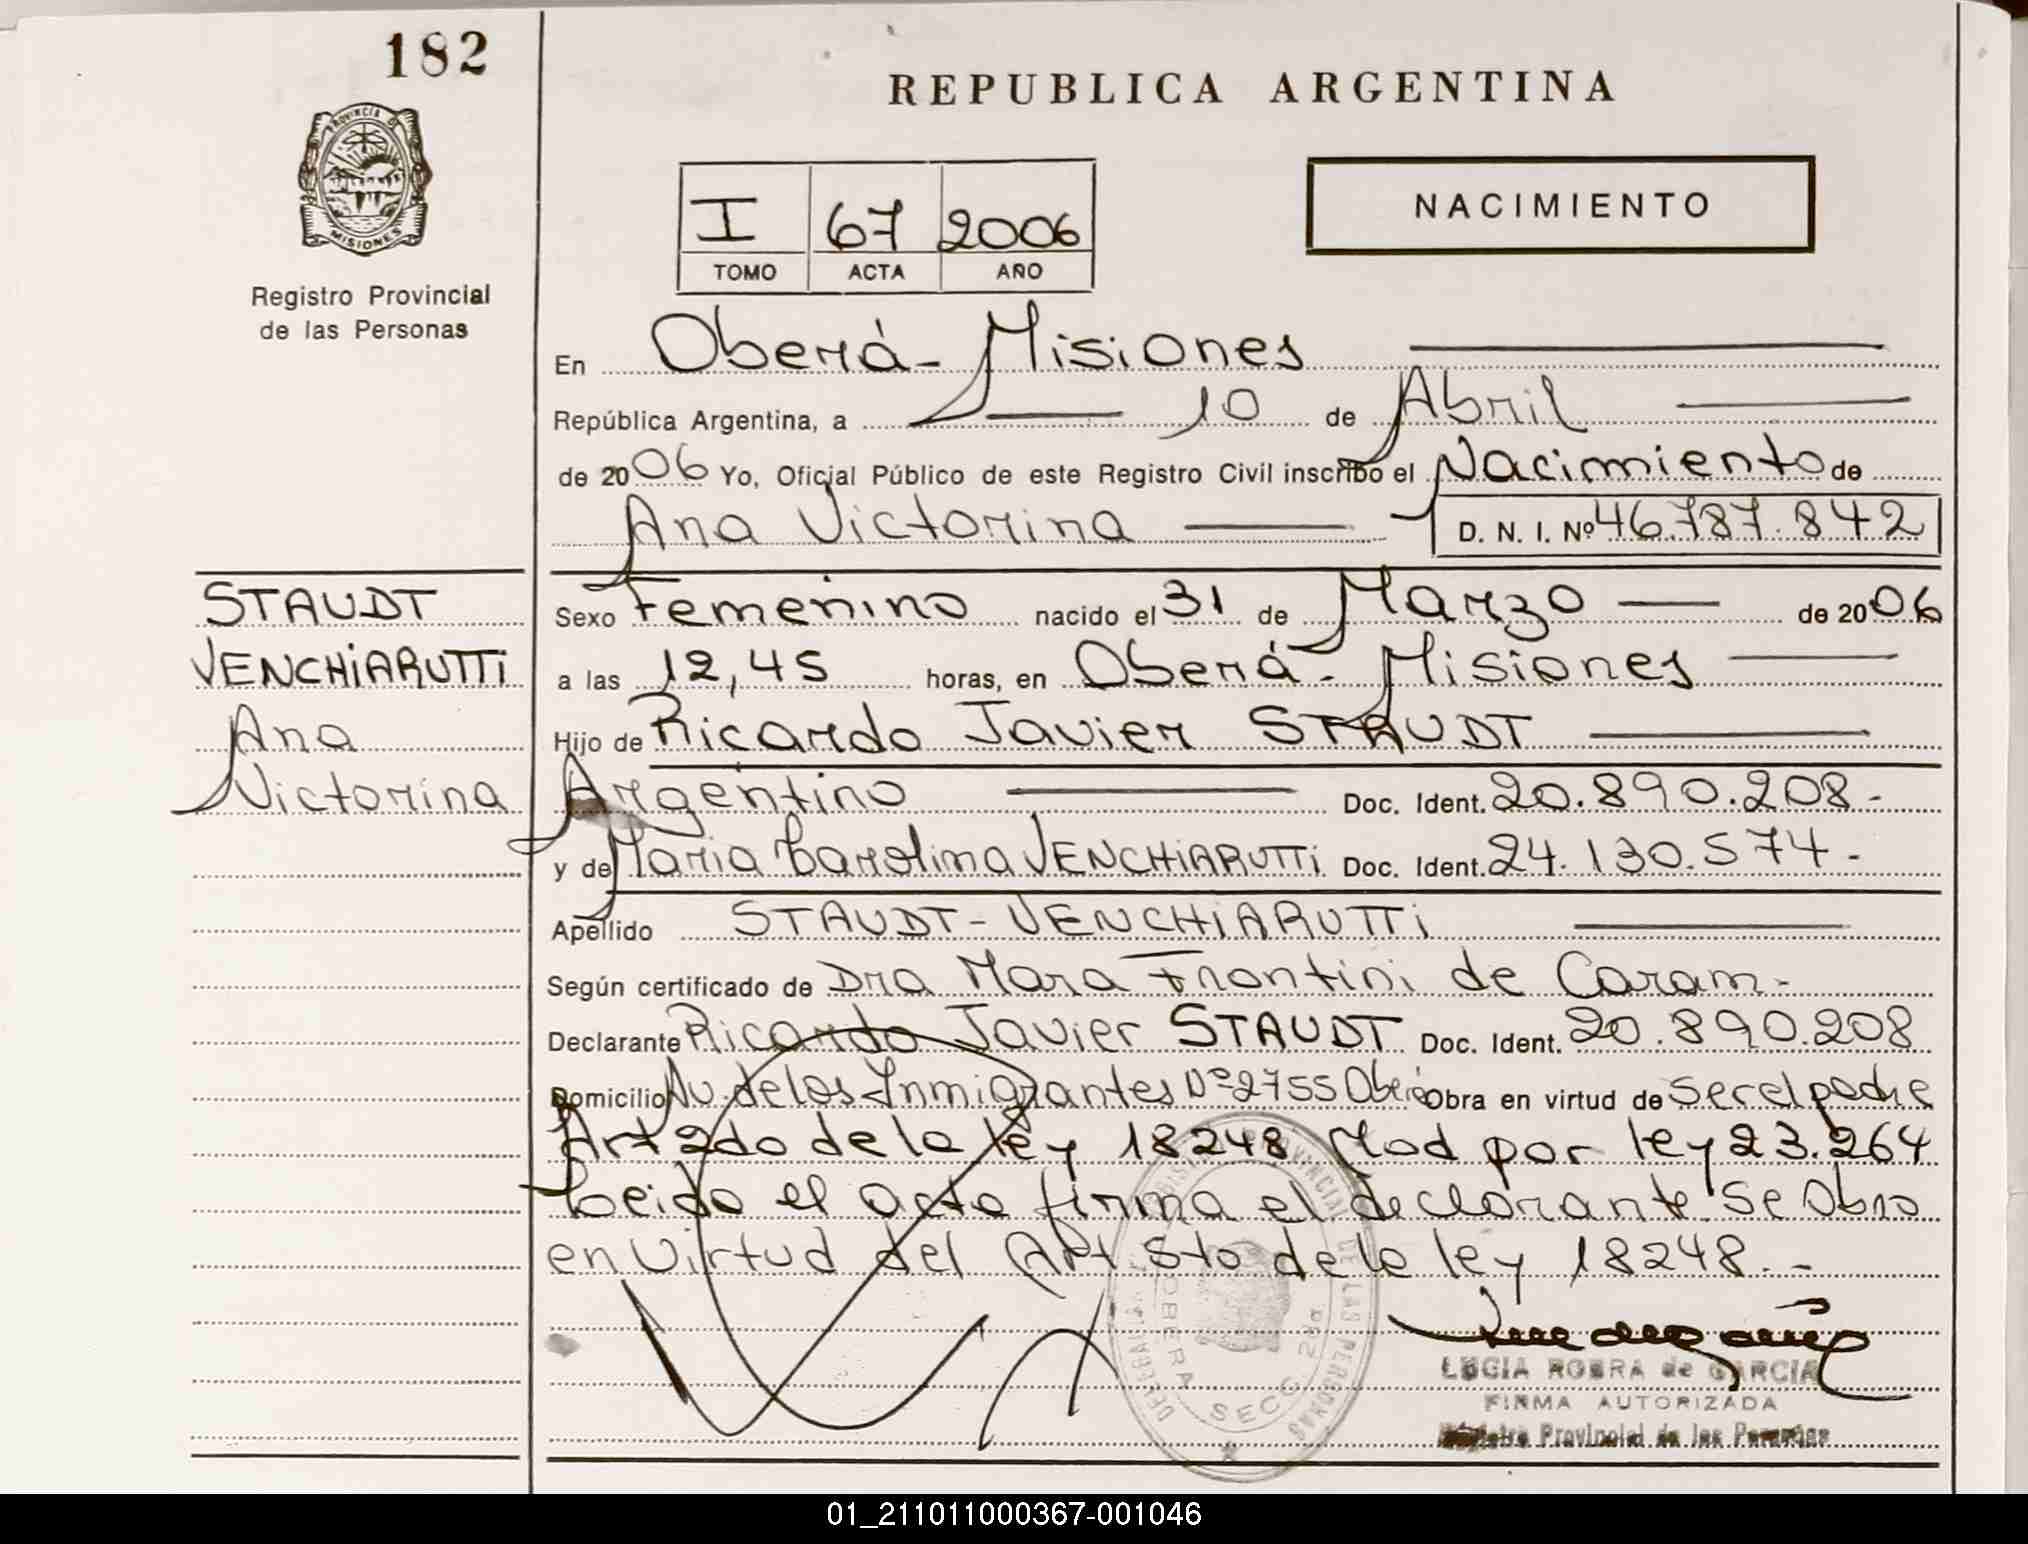 182
REPUBLICA ARGENTINA
PROVINCIA DE
MISIONES
Registro Provincial
de las Personas
I 67 2006
TOMO ACTA AÑO
NACIMIENTO
En Oberá - Misiones
República Argentina, a 10 de Abril
de 2006 Yo, Oficial Público de este Registro Civil inscribo el Nacimiento de
Ana Victorina D. N. I. Nº 46.787.842
STAUDT
VENCHiARUTTi
Ana
Victorina
Sexo Femenino nacido el 31 de Marzo de 2006
a las 12,45 horas, en Oberá - Misiones
Hijo de Ricardo Javier STAUDT
Argentino Doc. Ident. 20.890.208-
y de Maria Carolina VENCHiARUTTi Doc. Ident. 24.130.574-
Apellido STAUDT - VENCHiARUTTi
Según certificado de Dra Mara Frontini de Caram-
Declarante Ricardo Javier STAUDT Doc. Ident. 20.890.208
Domicilio Av. de los Inmigrantes Nº 2755 Oberá Obra en virtud de ser el padre
Art 2do de la ley 18248 Mod por ley 23.264
Leido el acta firma el declarante. Se Obra
en Virtud del Art 5to de la ley 18248.-
REGISTRO PROVINCIAL DE LAS PERSONAS
OBERA SECC 2da
LUCIA ROBRA de GARCIA
FIRMA AUTORIZADA
Registro Provincial de las Personas
01_211011000367-001046